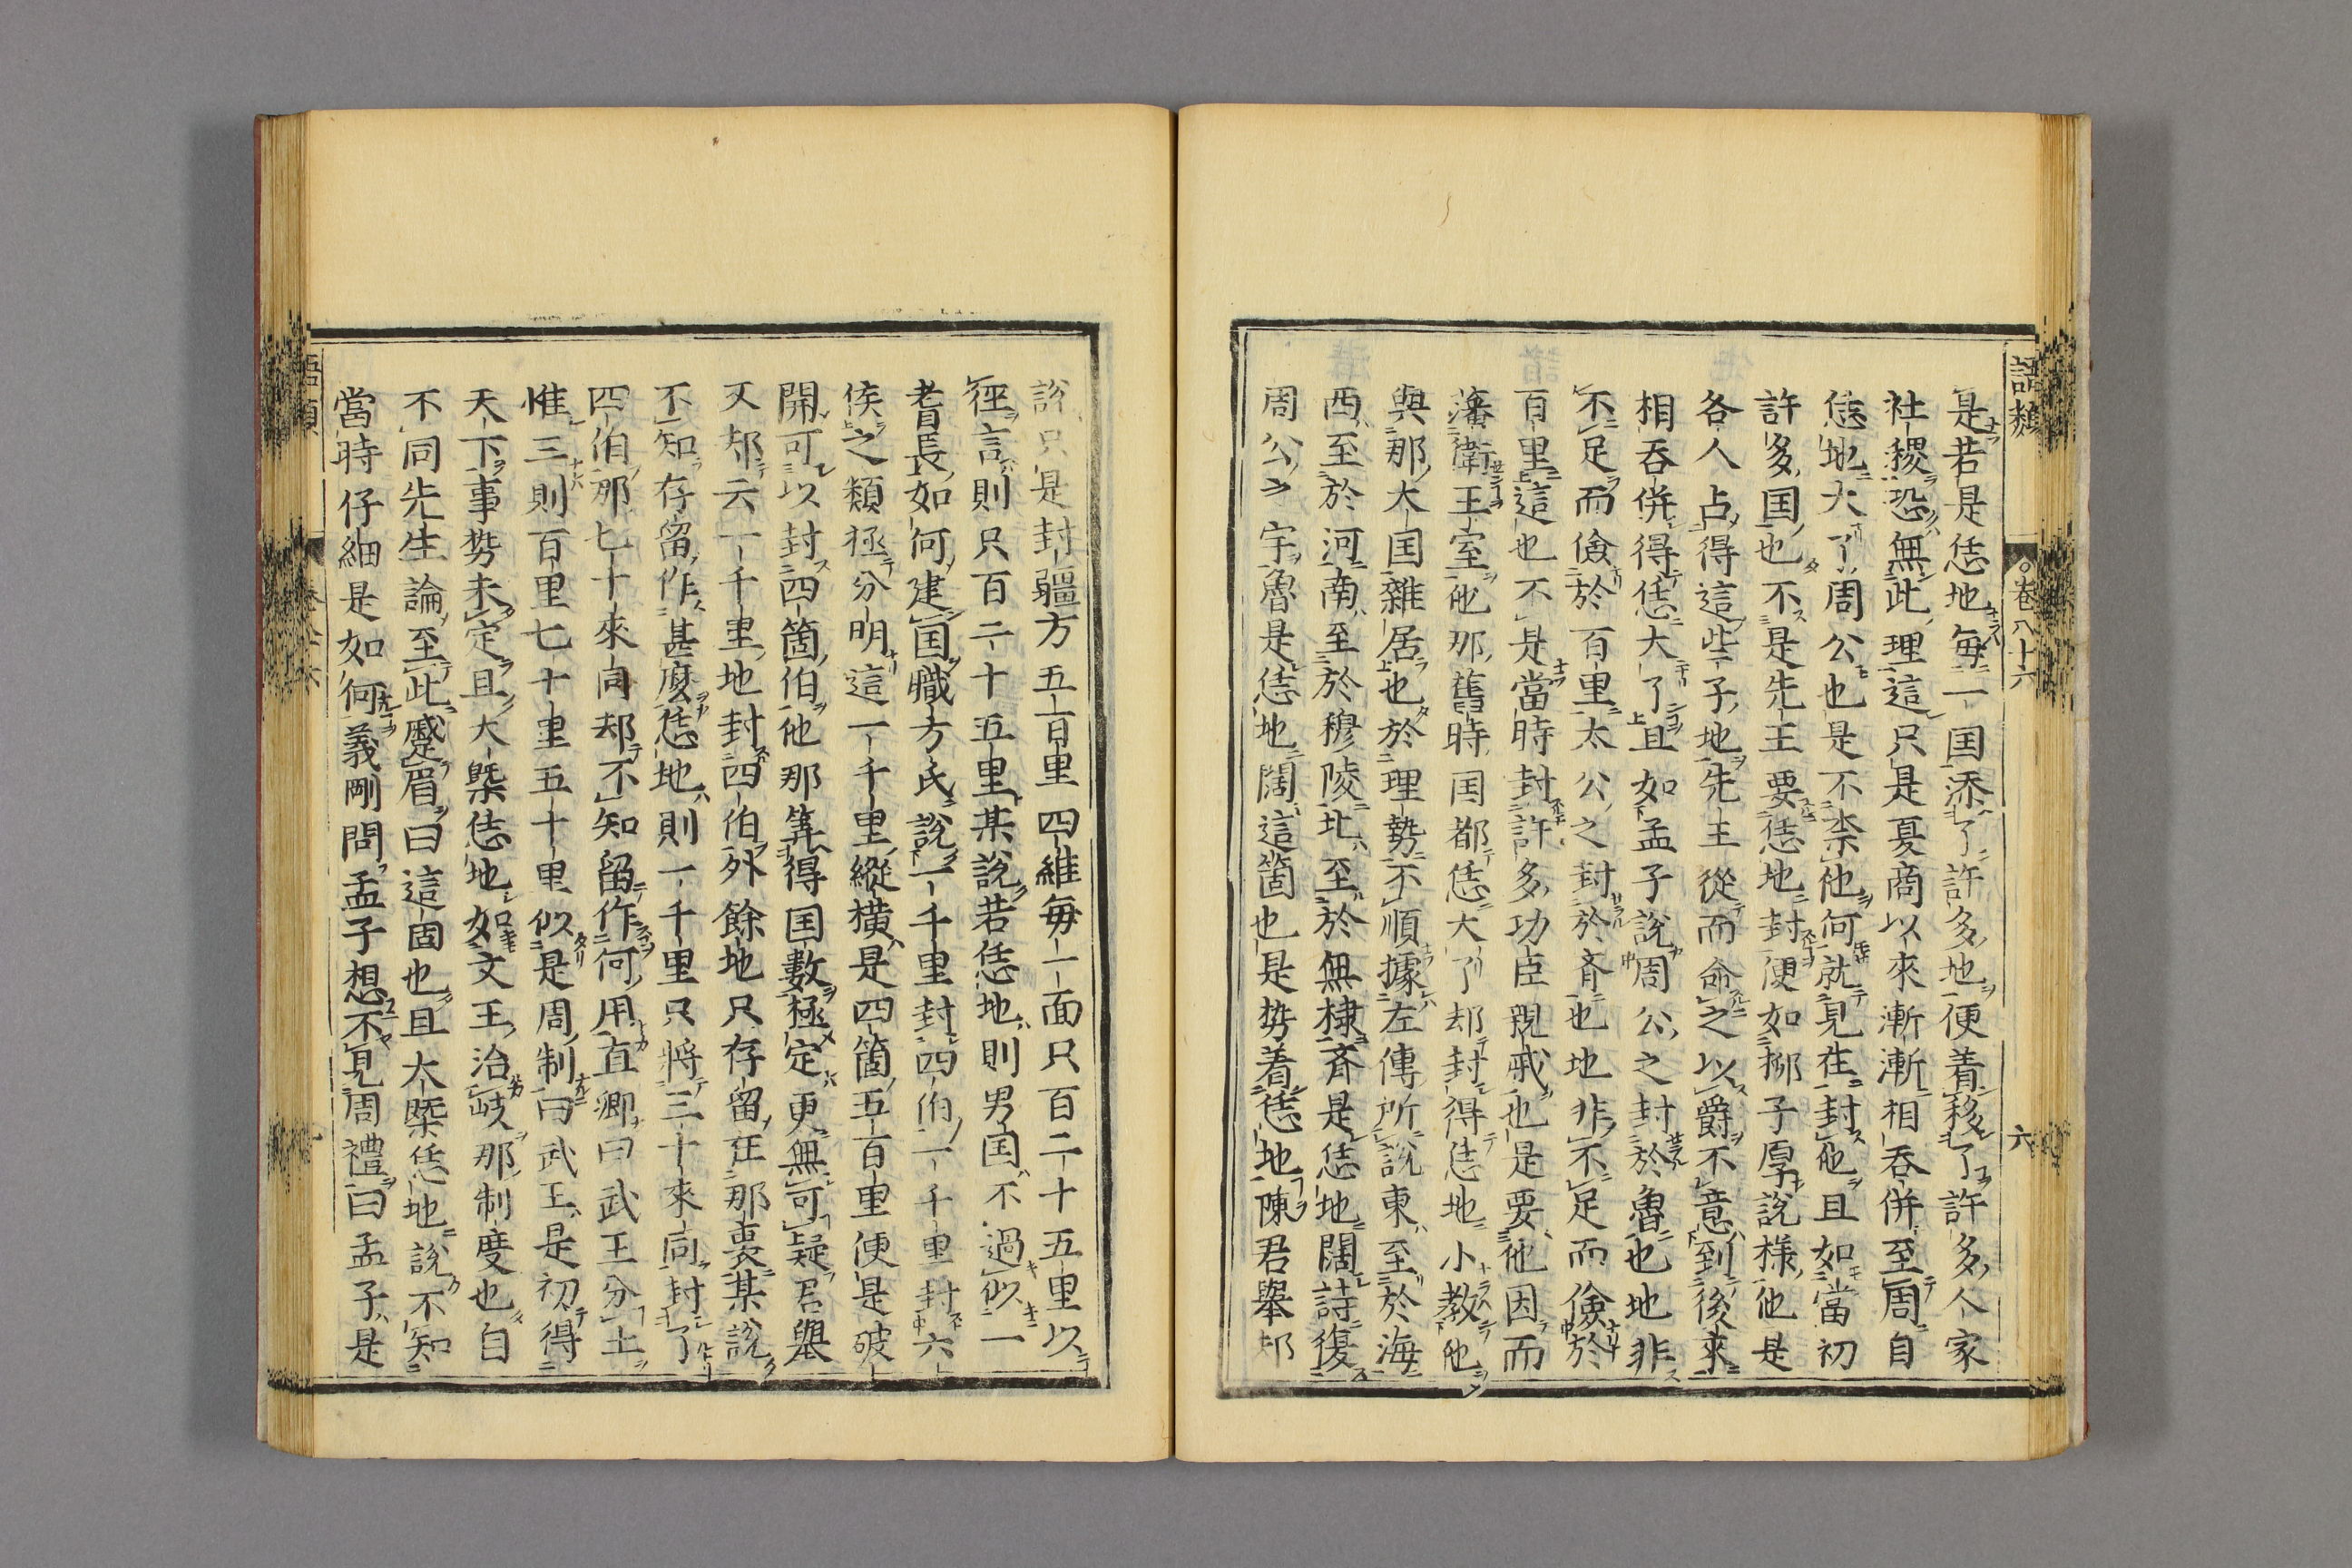 語類
卷八十六
六
是若是恁地每一国添了許多地便着移了許多人家
社稷恐無此理這只是夏商以來漸漸相吞併至周自
恁地大了周公也是不柰他何就見在封他且如當初
許多国也不是先王要恁地封便如柳子厚說樣他是
各人占得這些子地先王從而命之以爵不意到後來
相吞併得恁大了且如孟子說周公之封於魯也地非
不足而儉於百里太公之封於齊也地非不足而儉於
百里這也不是當時封許多功臣親戚也是要他因而
藩衛王室他那舊時国都恁大了却封得恁地小教他
與那大国雜居也於理勢不順據左傳所說東至於海
西至於河南至於穆陵北至於無棣齊是恁地闊詩復
周公之宇魯是恁地闊這箇也是勢着恁地陳君舉却
說只是封疆方五百里四維每一面只百二十五里以
徑言則只百二十五里某說若恁地則男国不過似一
耆長如何建国職方氏說一千里封四伯一千里封六
侯之類極分明這一千里縱橫是四箇五百里便是破
開可以封四箇伯他那筭得国數極定更無可疑君舉
又却云一千里地封四伯外餘地只存留在那裏某說
不知存留作甚麼恁地則一千里只將三十來同封了
四伯那七十來同却不知留作何用直卿曰武王分土
惟三則百里七十里五十里似是周制曰武王是初得
天下事勢未定且大槩恁地如文王治岐那制度也自
不同先生論至此蹙眉曰這固也且大槩恁地說不知
當時仔細是如何義剛問孟子想不見周禮曰孟子是
語類